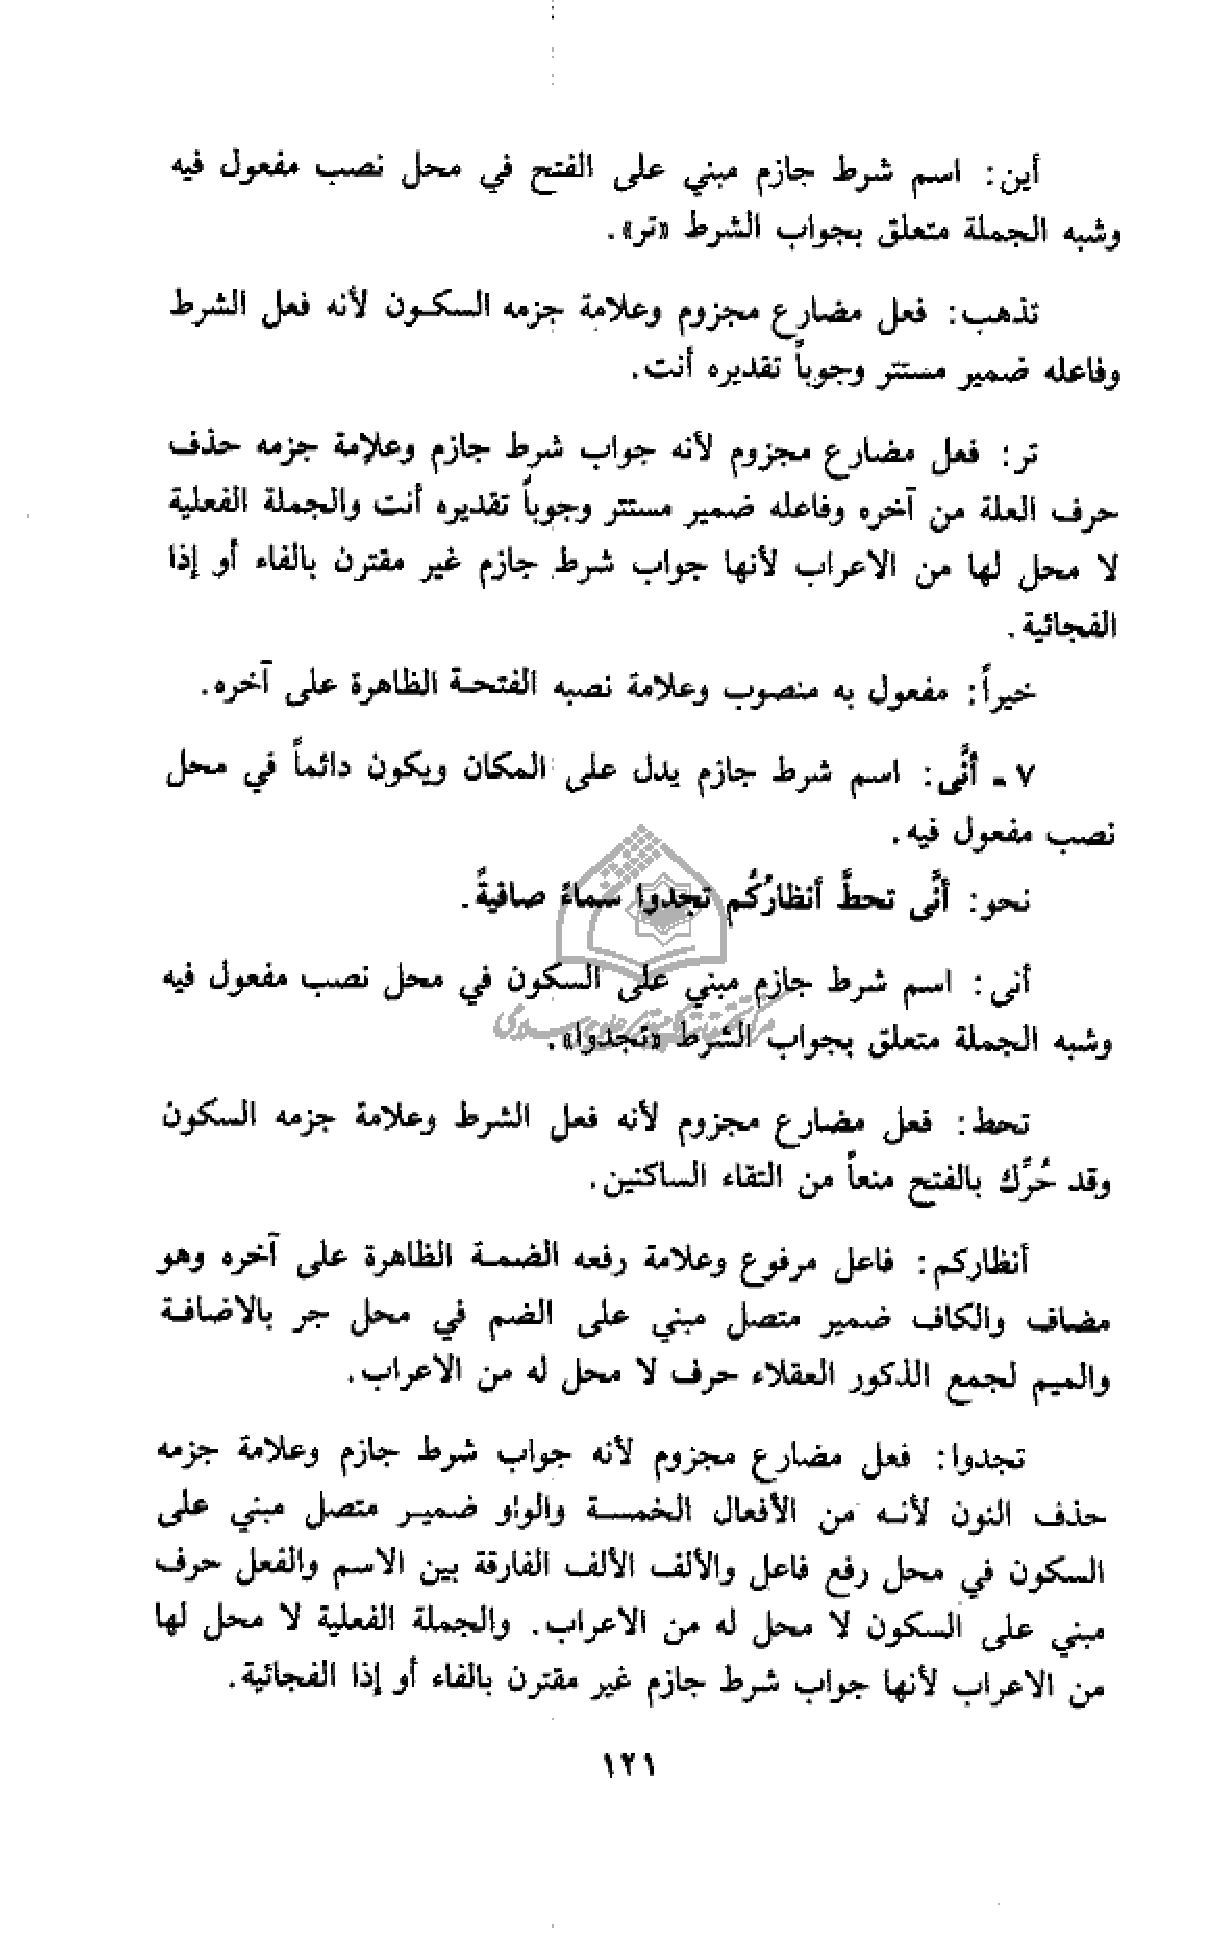 أين: اسم شرط جازم مبني على الفتح في محل نصب مفعول فيه
وشبه الجملة متعلق بجواب الشرط «تر».
تذهب: فعل مضارع مجزوم وعلامة جزمه السكون لأنه فعل الشرط
وفاعله ضمير مستتر وجوباً تقديره أنت.
تر: فعل مضارع مجزوم لأنه جواب شرط جازم وعلامة جزمه حذف
حرف العلة من آخره وفاعله ضمير مستتر وجوباً تقديره أنت والجملة الفعلية
لا محل لها من الاعراب لأنها جواب شرط جازم غير مقترن بالفاء أو إذا
الفجائية.
خيراً: مفعول به منصوب وعلامة نصبه الفتحة الظاهرة على آخره.
٧ - أنَّى: اسم شرط جازم يدل على المكان ويكون دائماً في محل
نصب مفعول فيه.
نحو: أنَّى تحطَّ أنظارُكُم تجدوا سماءً صافيةً.
أنى: اسم شرط جازم مبني على السكون في محل نصب مفعول فيه
وشبه الجملة متعلق بجواب الشرط «تجدوا».
تحط: فعل مضارع مجزوم لأنه فعل الشرط وعلامة جزمه السكون
وقد حُرِّك بالفتح منعاً من التقاء الساكنين.
أنظاركم: فاعل مرفوع وعلامة رفعه الضمة الظاهرة على آخره وهو
مضاف والكاف ضمير متصل مبني على الضم في محل جر بالاضافة
والميم لجمع الذكور العقلاء حرف لا محل له من الاعراب.
تجدوا: فعل مضارع مجزوم لأنه جواب شرط جازم وعلامة جزمه
حذف النون لأنه من الأفعال الخمسة والواو ضمير متصل مبني على
السكون في محل رفع فاعل والألف الألف الفارقة بين الاسم والفعل حرف
مبني على السكون لا محل له من الاعراب. والجملة الفعلية لا محل لها
من الاعراب لأنها جواب شرط جازم غير مقترن بالفاء أو إذا الفجائية.
١٢١